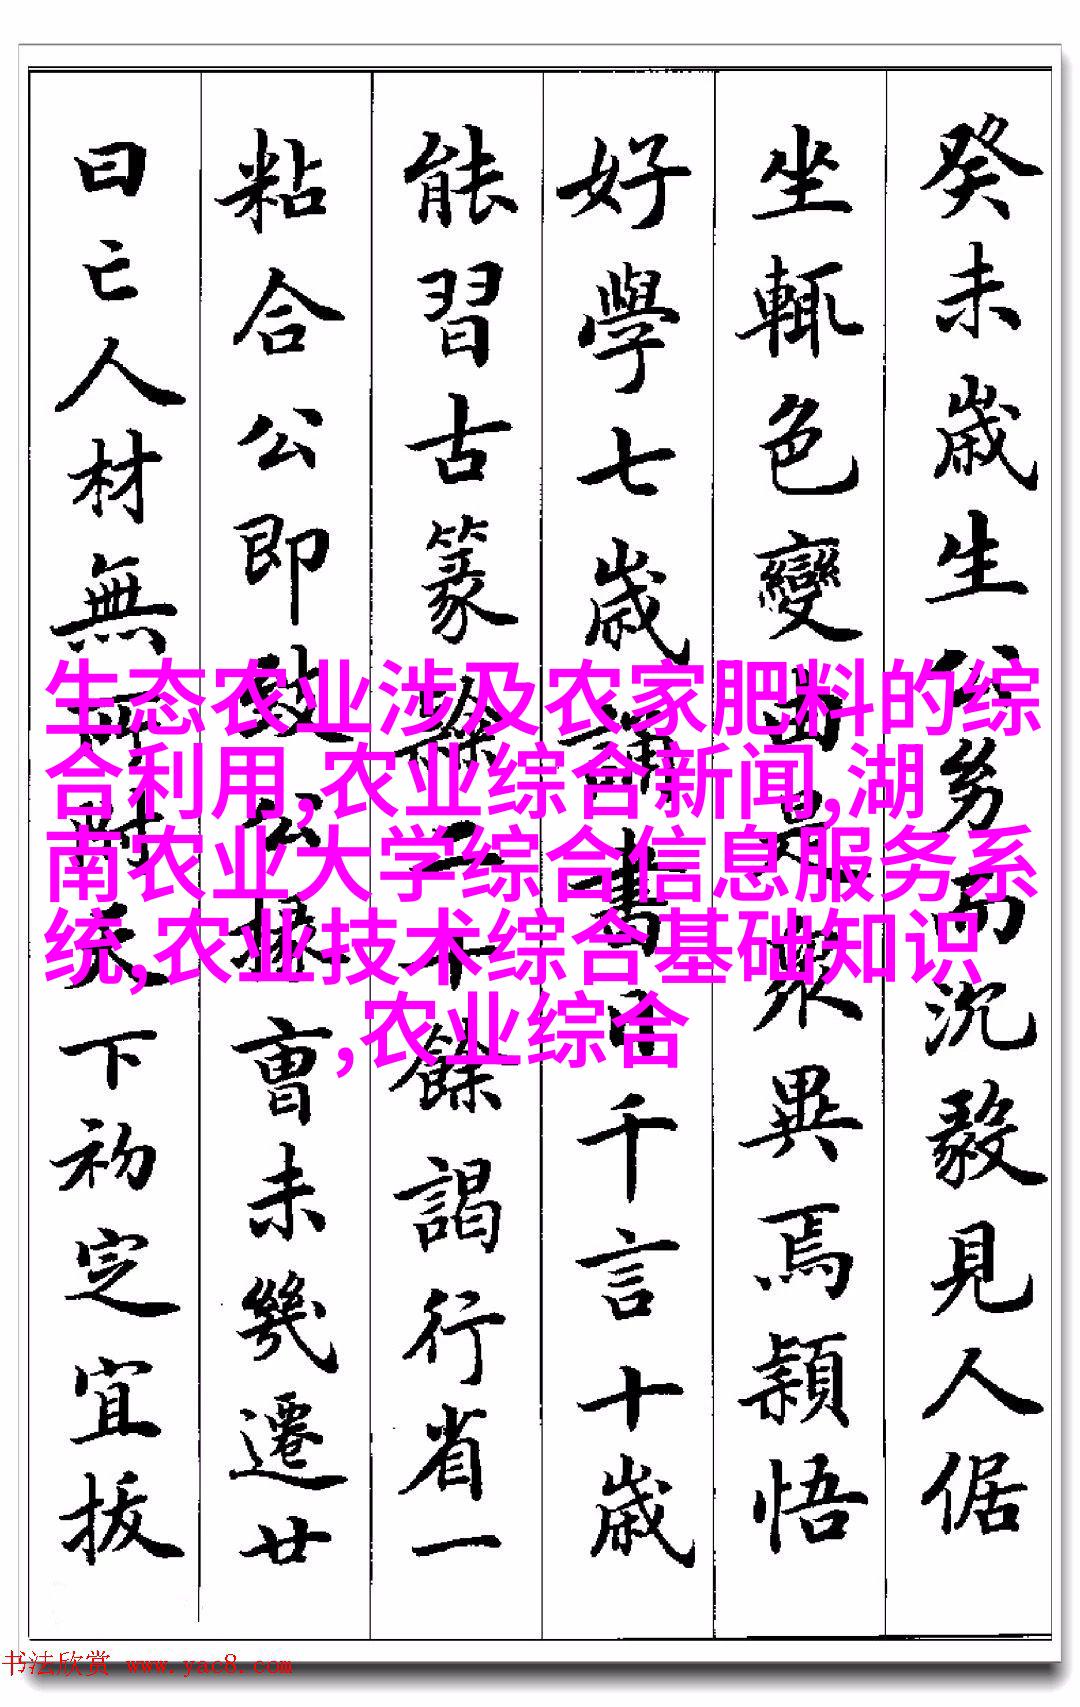 癸未歲生公㓜而沉毅見人倨
坐輒色變出是衆異焉穎悟
好學七歲誦書日千言十歲
能習古篆餘謁行省一
粘合公即公掾曺未幾遷廿
曰亡人材無天下初定宜拔
生态农业涉及农家肥料的综
合利用,农业综合新闻,湖
南农业大学综合信息服务系
统,农业技术综合基础知识
,农业综合
书法欣赏 www.yac8.com